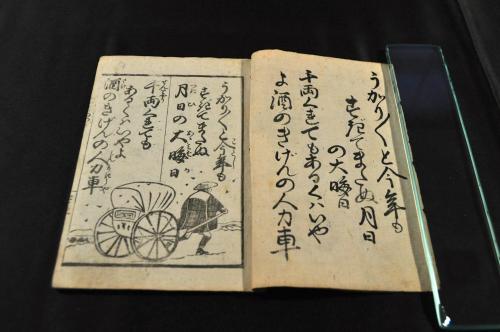 うかり〳〵と今年も
すぎてまたぬ月日
の大晦日
千両くれてもあるくハいや
よ酒のきげんの人力車
うかり〳〵と今年も
すぎてまたぬ
月日の大晦日
千両くれても
あるくハいやよ
酒のきげんの人力車